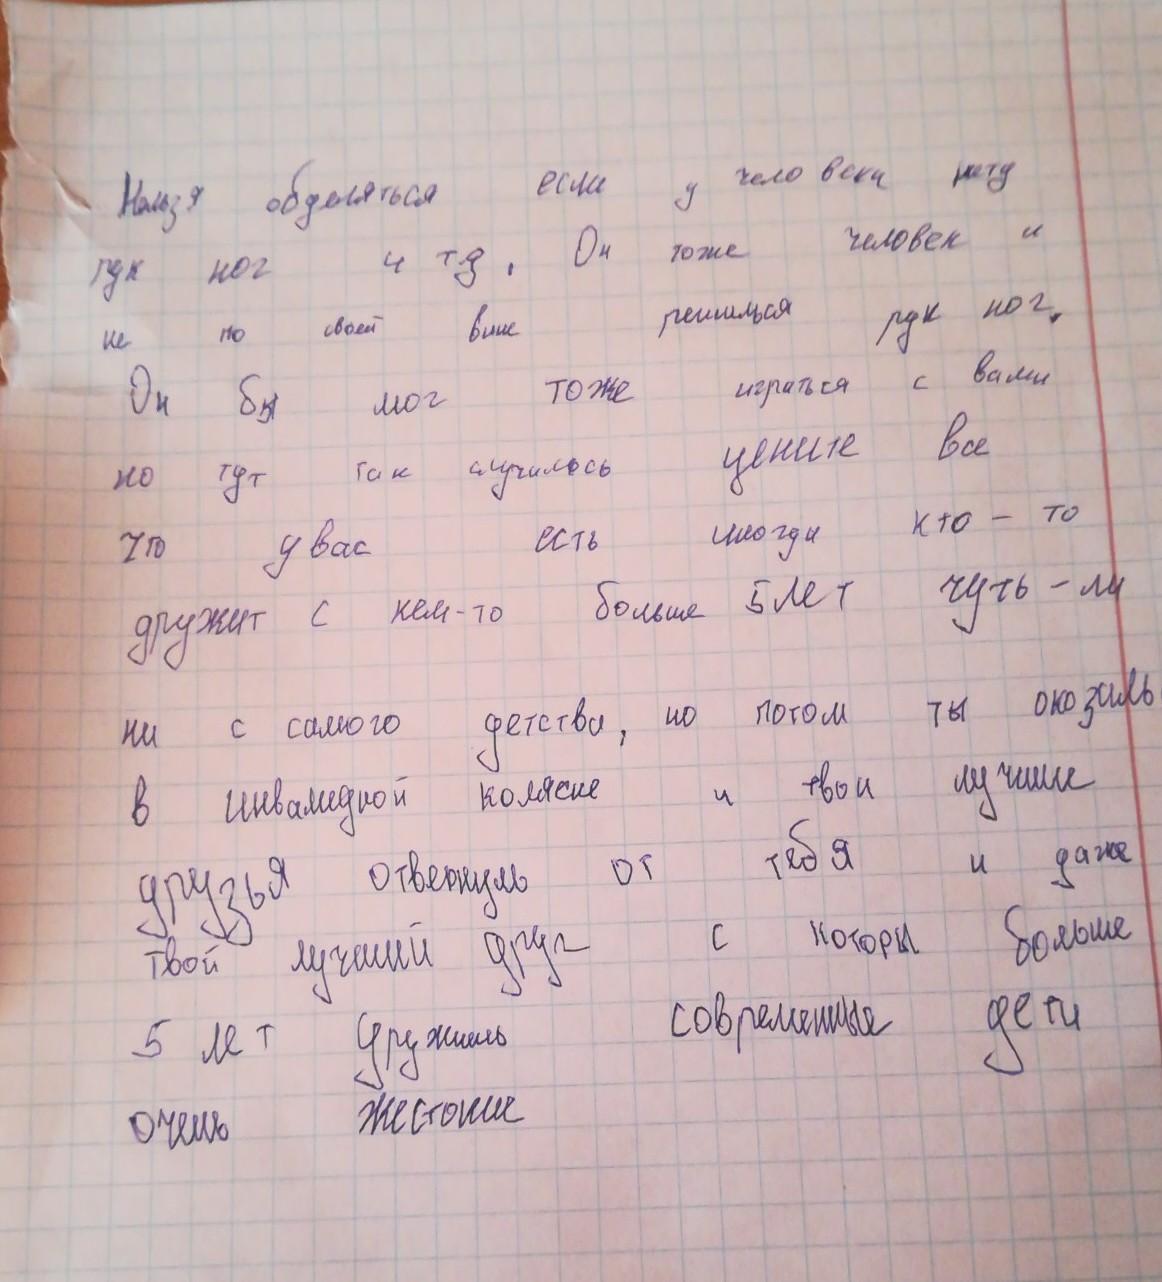 Нельзя обделяться если у человека нету
рук ног и тд. Он тоже человек и
не по своей вине решилься рук ног.
Он бы мог тоже играться с вами
но тут так случилось цените все
что у вас есть иногда кто-то
дружит с кем-то больше 5 лет чуть-ли
ни с самого детства, но потом ты оказаль
в инвалидной коляске и твои лучшие
друзья отвернуль от тебя и даже
твой лучший друг с которы больше
5 лет дружишь современные дети
очень жестокие